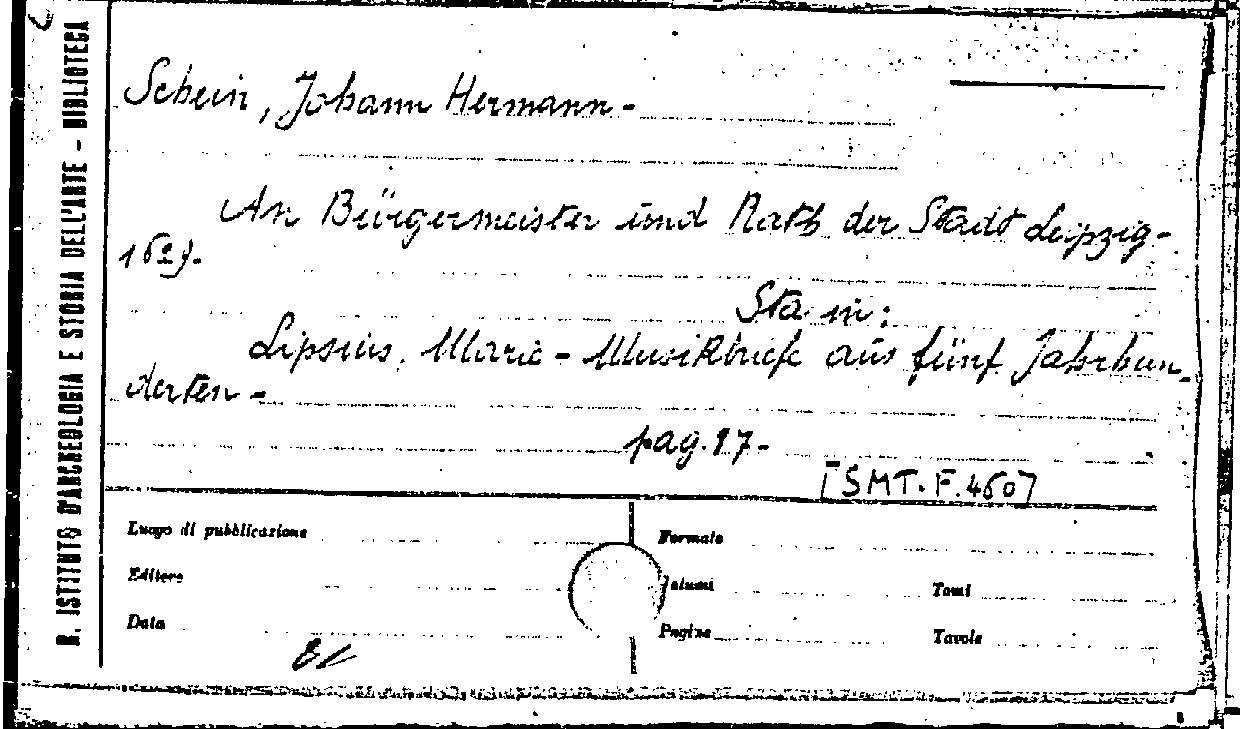 R. ISTITUTO D'ARCHEOLOGIA E STORIA DELL'ARTE - BIBLIOTECA
Schein, Johann Hermann -
An Bürgermeister und Rath der Stadt Leipzig -
1629.
Sta in:
Lipsius, Marie - Musikbriefe aus fünf Jahrhun
derten -
pag. 17 -
[SMT. F. 460]
Luogo di pubblicazione
Formato
Editore
Volumi
Tomi
Data
Pagine
Tavole